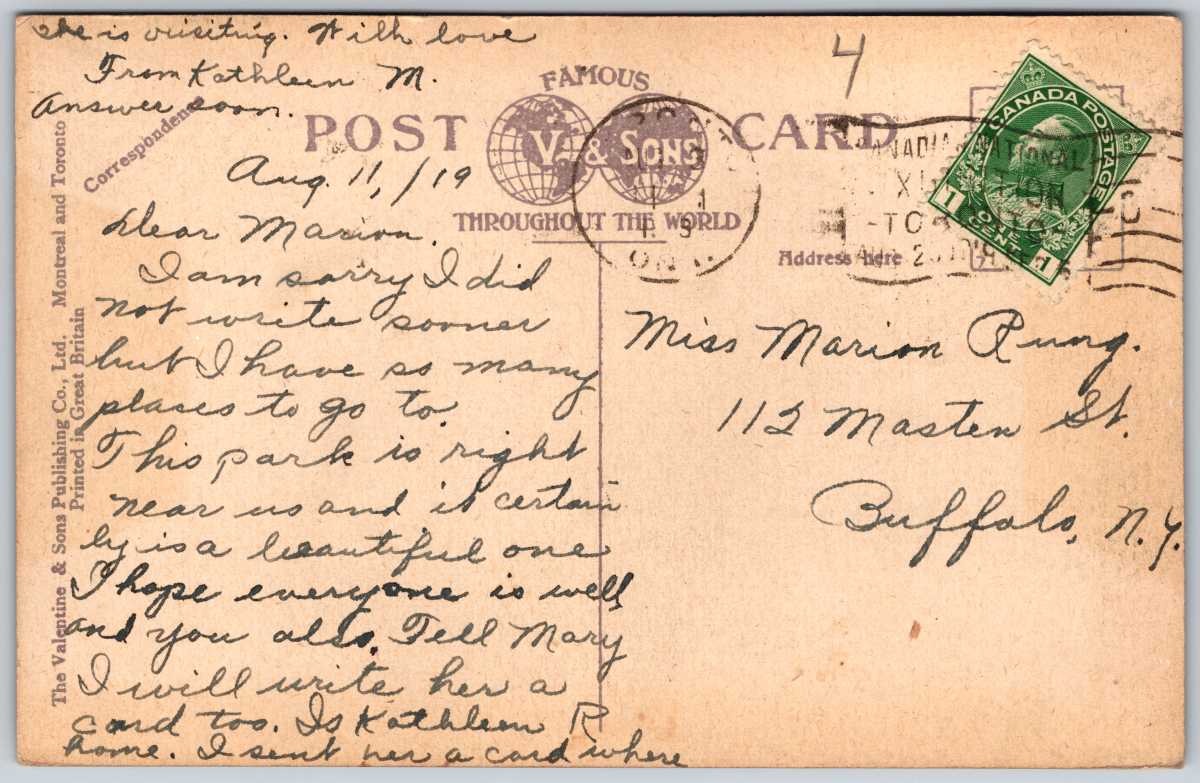 she is visiting. With love
From Kathleen M.
answer soon.
4
FAMOUS
POST V. & SONS CARD
THROUGHOUT THE WORLD
Correspondence
Address here
The Valentine & Sons Publishing Co., Ltd. Montreal and Toronto
Printed in Great Britain
CANADA POSTAGE
1 ONE CENT 1
CANADIAN NATIONAL
ONT.
Aug. 11, /19
Dear Marion.
I am sorry I did
not write sooner
but I have so many
places to go to.
This park is right
near us and it certain
ly is a beautiful one
I hope everyone is well
and you also. Tell Mary
I will write her a
card too. Is Kathleen R
home. I sent her a card where
Miss Marion Rung.
112 Masten St.
Buffalo, N.Y.